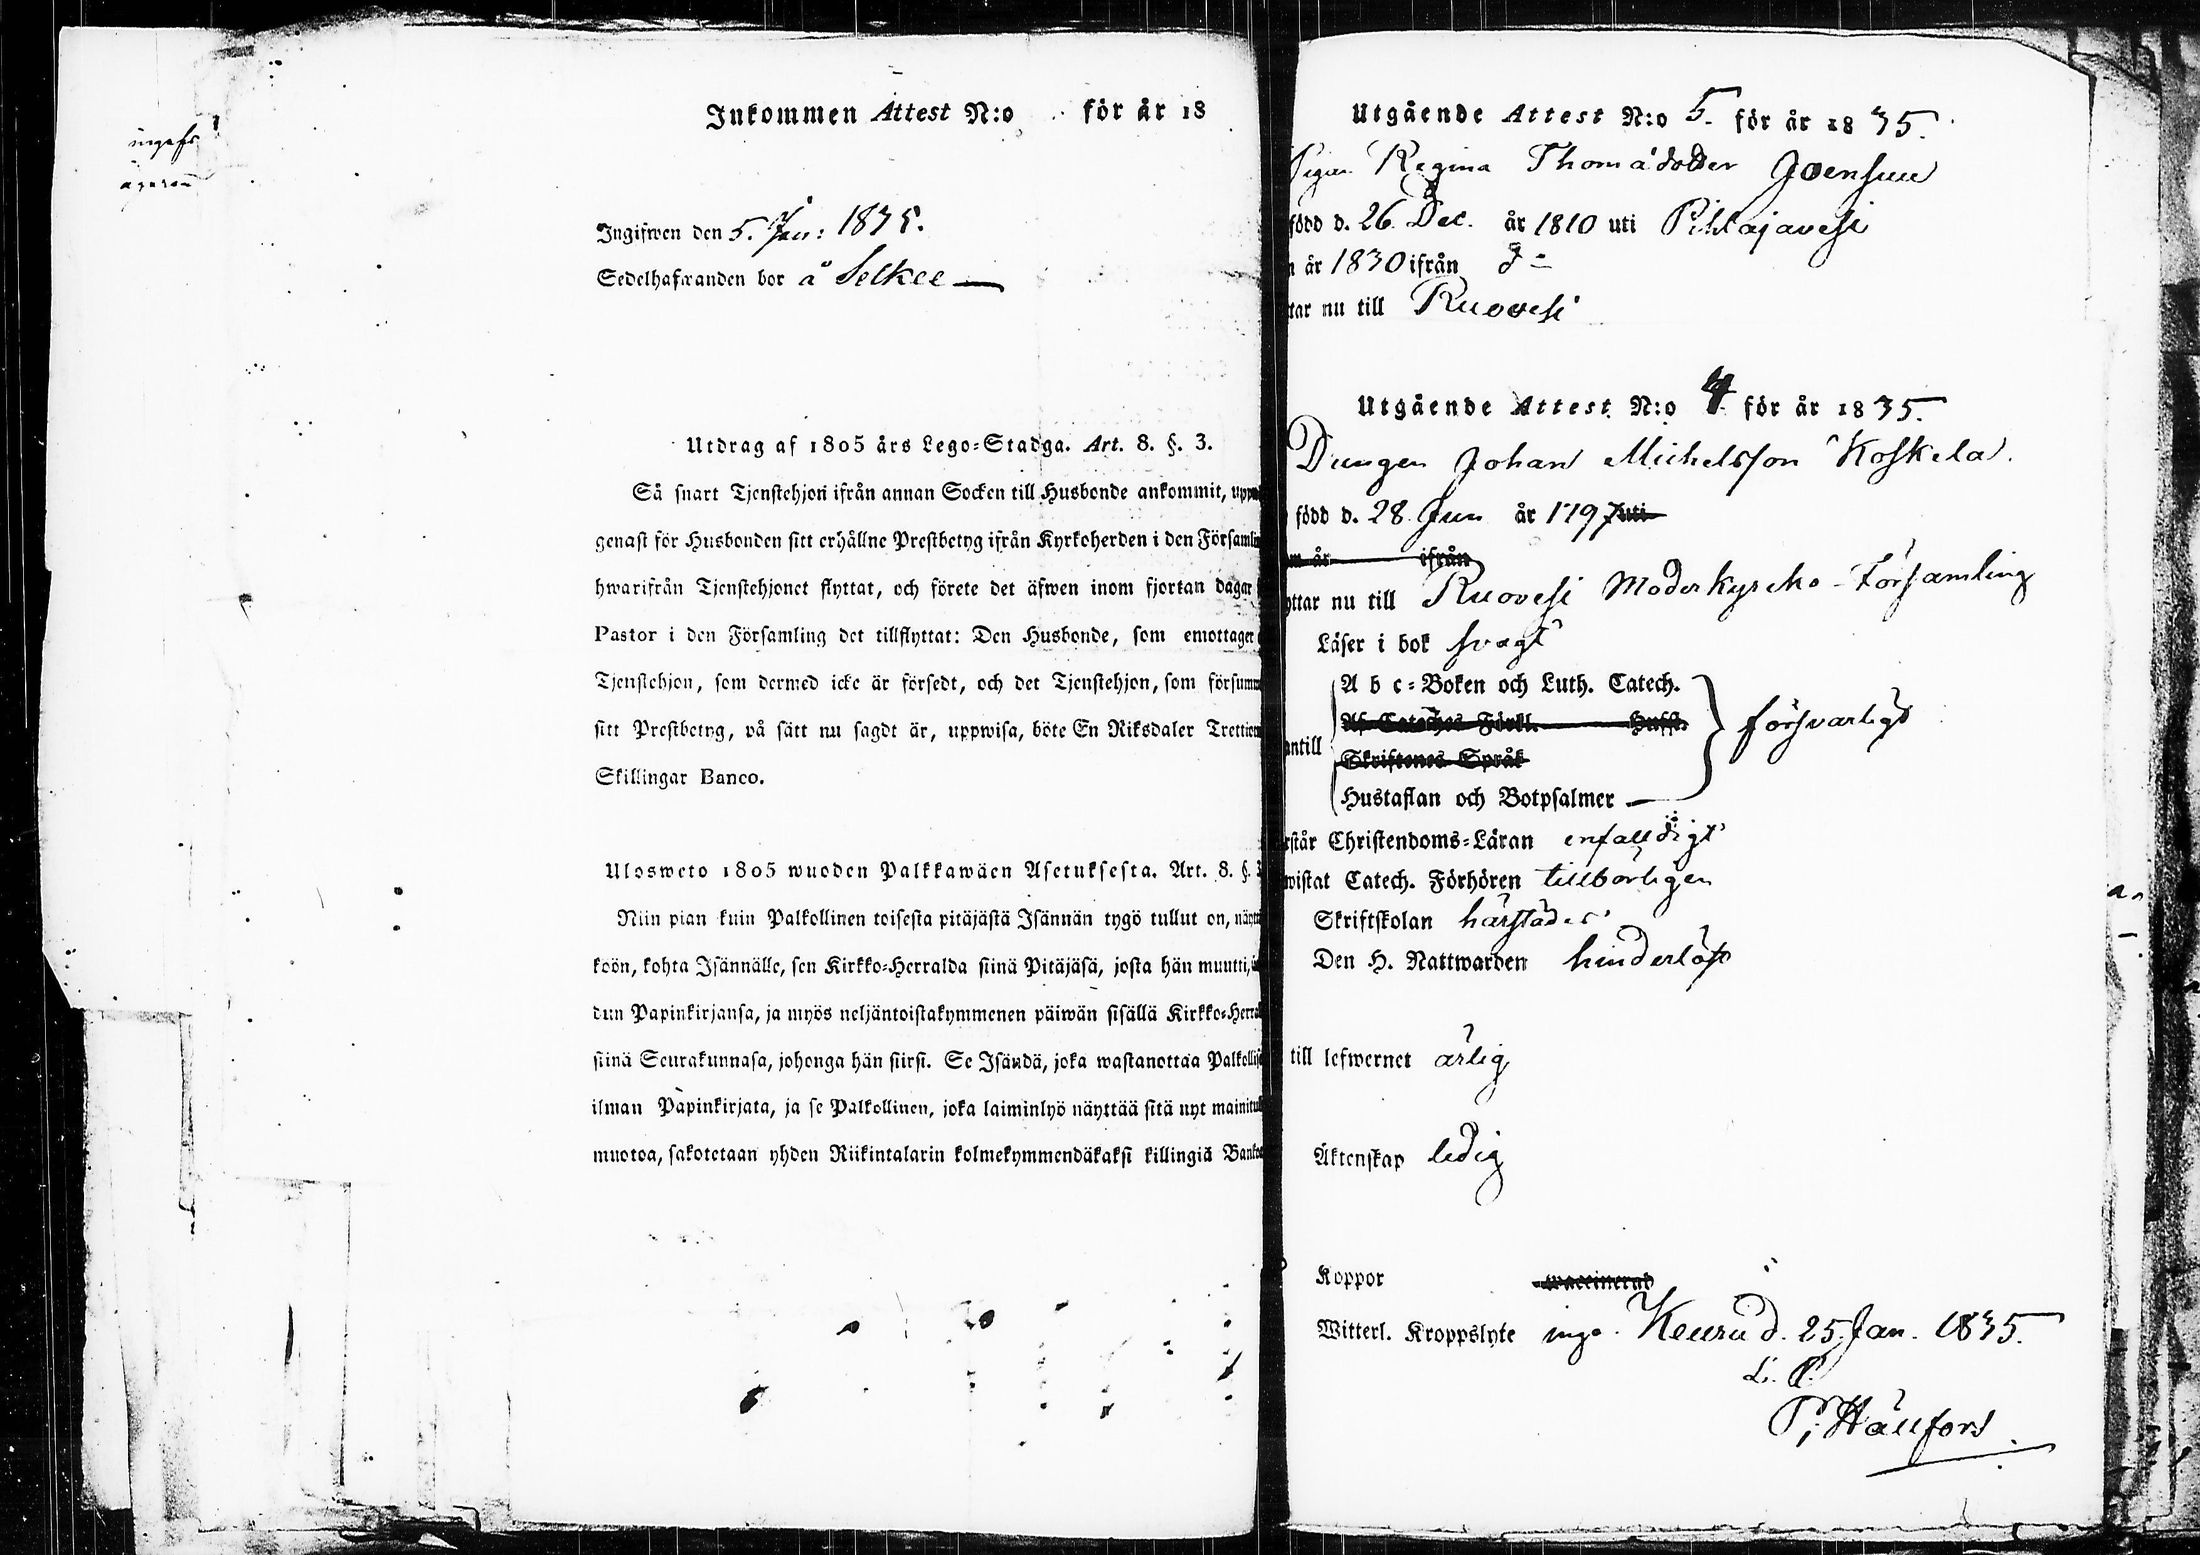 Inkommen Attest N:o för år 18
Ingifwen den 5. Jan: 1835.
Sedelhafwanden bor å Selkee
Utdrag af 1805 års Lego-Stadga. Art. 8. §. 3.
Så snart Tjenstehjon ifrån annan Socken till Husbonde ankommit, upp
genast för Husbonden sitt erhållne Prestbetyg ifrån Kyrkoherden i den Församlin
hwarifrån Tjenstehjonet flyttat, och förete det äfwen inom fjortan dagar
Pastor i den Församling det tillflyttat: Den Husbonde, som emottager
Tjenstehjon, som dermed icke är försedt, och det Tjenstehjon, som försumm
sitt Prestbetyg, på sätt nu sagdt är, uppwisa, böte En Riksdaler Trettio
Skillingar Banco.
Ulosweto 1805 wuoden Palkkawäen Asetuksesta. Art. 8. §.
Niin pian kuin Palkollinen toisesta pitäjästä Isännän tygö tullut on, näytt
köön, kohta Isännälle, sen Kirkko-Herralda siinä Pitäjäsä, josta hän muutti,
dun Papinkirjansa, ja myös neljäntoistakymmenen päiwän sisällä Kirkko-Herra
siinä Seurakunnasa, johonga hän siirsi. Se Isändä, joka wastanottaa Palkollis
ilman Papinkirjata, ja se Palkollinen, joka laiminlyö näyttää sitä nyt mainitul
muotoa, sakotetaan yhden Riikintalarin kolmekymmendäkaksi killingiä Banko
Utgående Attest N:o 5. för år 1835.
Pigan Regina Thomädotter Joensuu
född d. 26 Dec. år 1810 uti Pihlajavesi
n år 1830 ifrån d:o
tar nu till Ruovesi
Utgående Attest N:o 4 för år 1835.
Drängen Johan Michelsson Koskela.
född d. 28 Jun år 1797 uti
m år ifrån
yttar nu till Ruovesi Moderkyrcko-Församling
Läser i bok svagt
A b c-Boken och Luth. Catech.
Af Cateches Förkl. Huffl.
antill försvarligt
Skriftenes Språk
Hustaflan och Botpsalmer
rstår Christendoms-Läran enfalldigt
wistat Catech. Förhören tillbörligen
Skriftskolan härstädes
Den H. Nattwarden hinderlöst
till lefwernet ärlig
Äktenskap ledig
Koppor waccinerad
Witterl. Kroppslyte inga. Keuru d. 25. Jan. 1835.
P. Hällfors